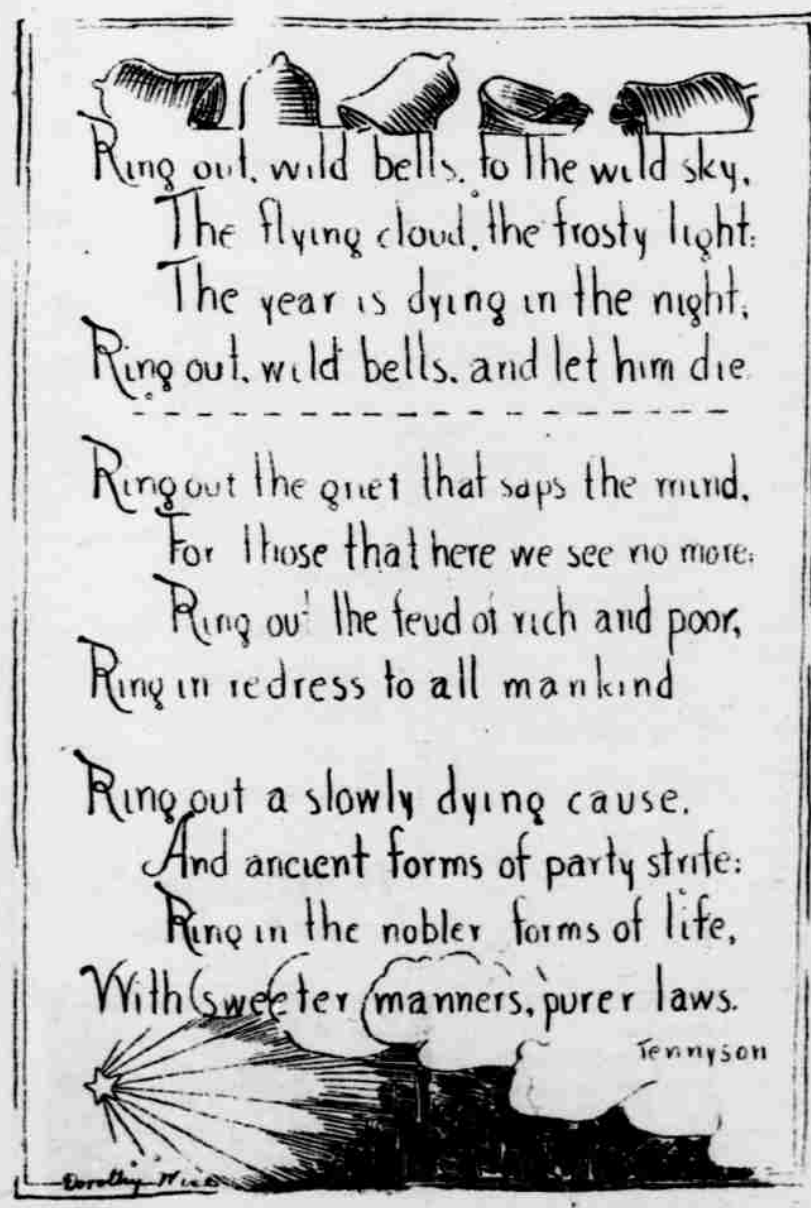 Ring out, wild bells, to the wild sky,
The flying cloud, the frosty light:
The year is dying in the night;
Ring out, wild bells, and let him die
Ring out the grief that saps the mind,
For those that here we see no more;
Ring out the feud of rich and poor,
Ring in redress to all mankind
Ring out a slowly dying cause,
And ancient forms of party strife:
Ring in the nobler forms of life,
With sweeter manners, purer laws.
Tennyson
Dorothy